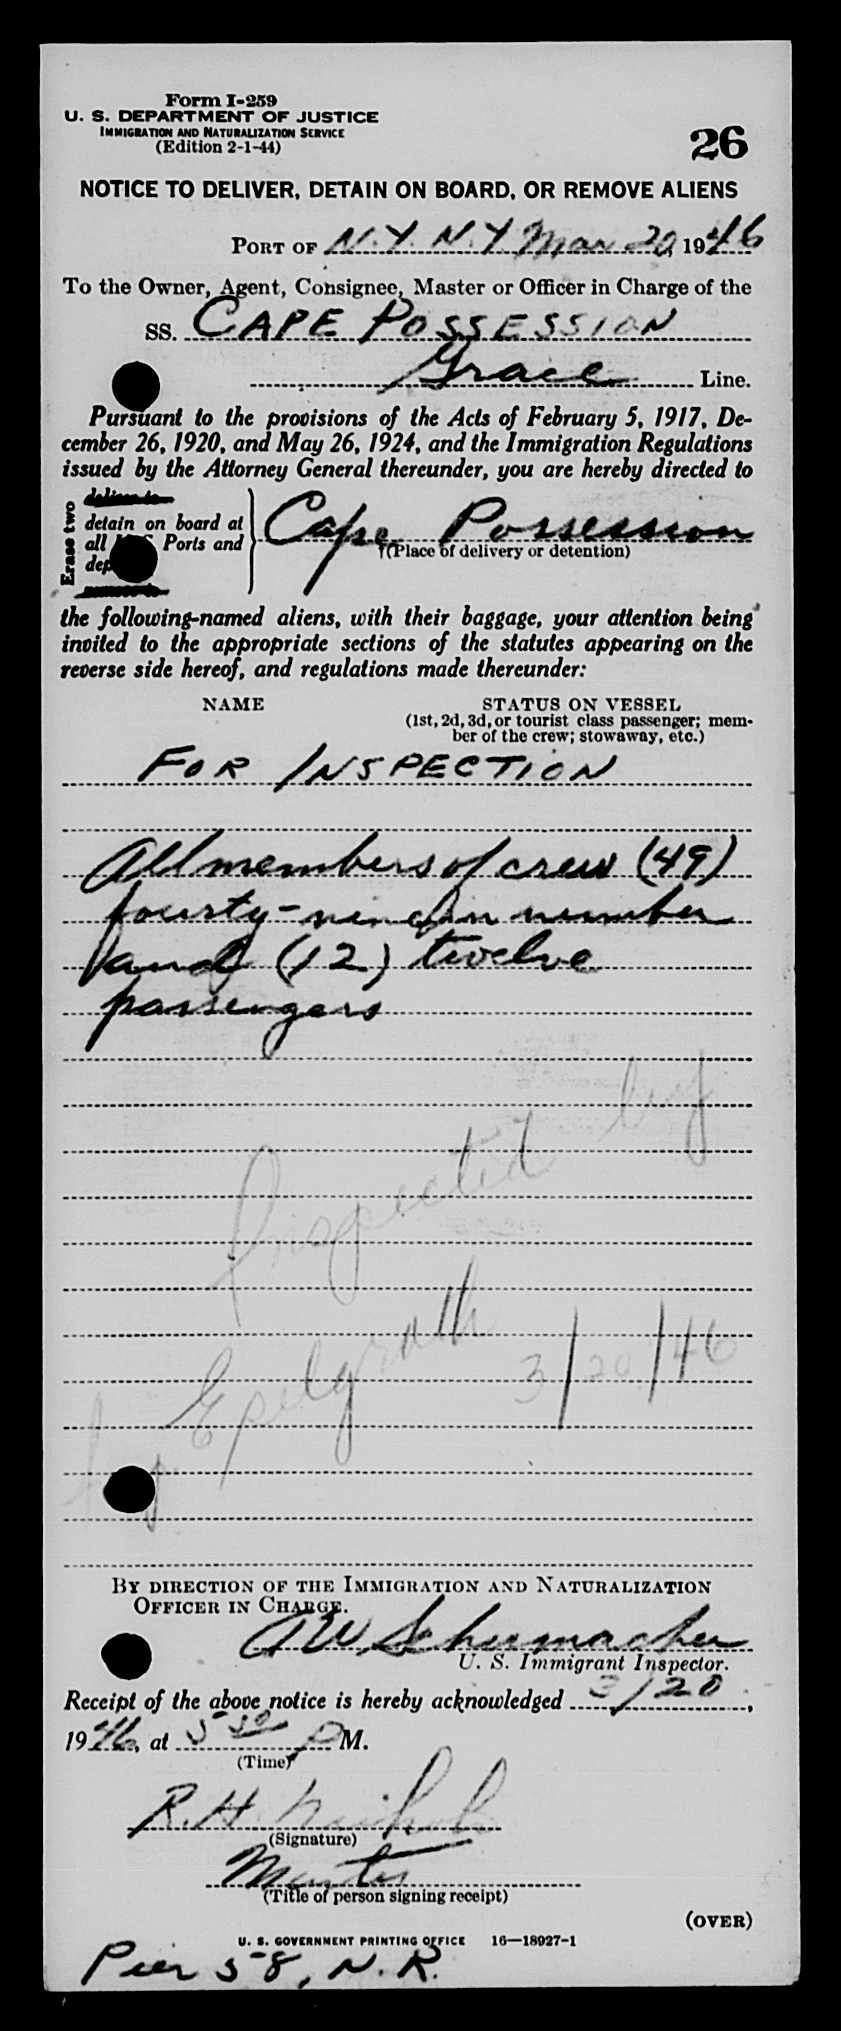 Form I-259
U. S. DEPARTMENT OF JUSTICE
IMMIGRATION AND NATURALIZATION SERVICE
(Edition 2-1-44)
26
NOTICE TO DELIVER, DETAIN ON BOARD, OR REMOVE ALIENS
PORT OF N.Y. N.Y. Mar 20, 1946
To the Owner, Agent, Consignee, Master or Officer in Charge of the
SS. CAPE POSSESSION
Grace Line.
Pursuant to the provisions of the Acts of February 5, 1917, De-
cember 26, 1920, and May 26, 1924, and the Immigration Regulations
issued by the Attorney General thereunder, you are hereby directed to
Erase two
deliver to
detain on board at
all Ports and
remove to
Cape Possession
(Place of delivery or detention)
the following-named aliens, with their baggage, your attention being
invited to the appropriate sections of the statutes appearing on the
reverse side hereof, and regulations made thereunder:
NAME STATUS ON VESSEL
(1st, 2d, 3d, or tourist class passenger; mem-
ber of the crew; stowaway, etc.)
FOR INSPECTION
All members of crew (49)
fourty-nine in number
and (12) twelve
passengers
Inspected by
3/20/46
BY DIRECTION OF THE IMMIGRATION AND NATURALIZATION
OFFICER IN CHARGE.
AW Schumacher
U. S. Immigrant Inspector.
Receipt of the above notice is hereby acknowledged 3/20,
1946, at 5 30 P M.
(Time)
R. H.
(Signature)
Master
(Title of person signing receipt)
(OVER)
U. S. GOVERNMENT PRINTING OFFICE 16—18927-1
Pier 58, N. R.